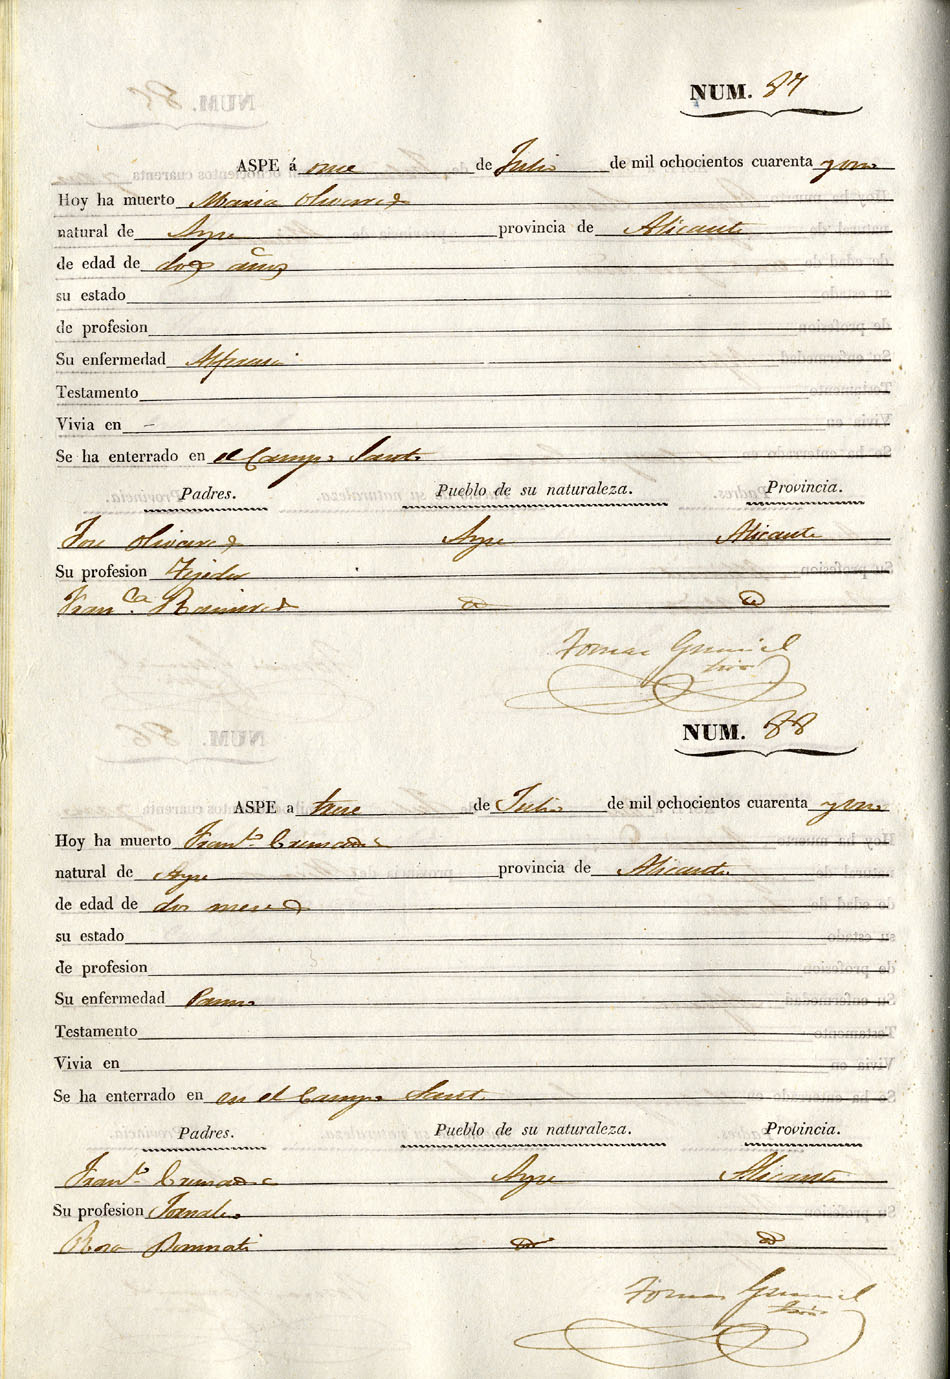 NUM. 87
ASPE á once de Julio de mil ochocientos cuarenta y uno
Hoy ha muerto Maria Olivares
natural de Aspe provincia de Alicante
de edad de dos años
su estado
de profesion
Su enfermedad
Testamento
Vivia en –
Se ha enterrado en el Campo Santo
Padres. Pueblo de su naturaleza. Provincia.
Jose Olivares Aspe Alicante
Su profesion Tejedor
Fran.ca Ramires
Tomas
NUM. 88
ASPE a trece de Julio de mil ochocientos cuarenta y uno
Hoy ha muerto Fran.co Cremades
natural de Aspe provincia de Alicante
de edad de dos meses
su estado
de profesion
Su enfermedad
Testamento
Vivia en
Se ha enterrado en en el Campo Santo
Padres. Pueblo de su naturaleza. Provincia.
Fran.co Cremades Aspe Alicante
Su profesion Jornalero
Rosa
Tomas